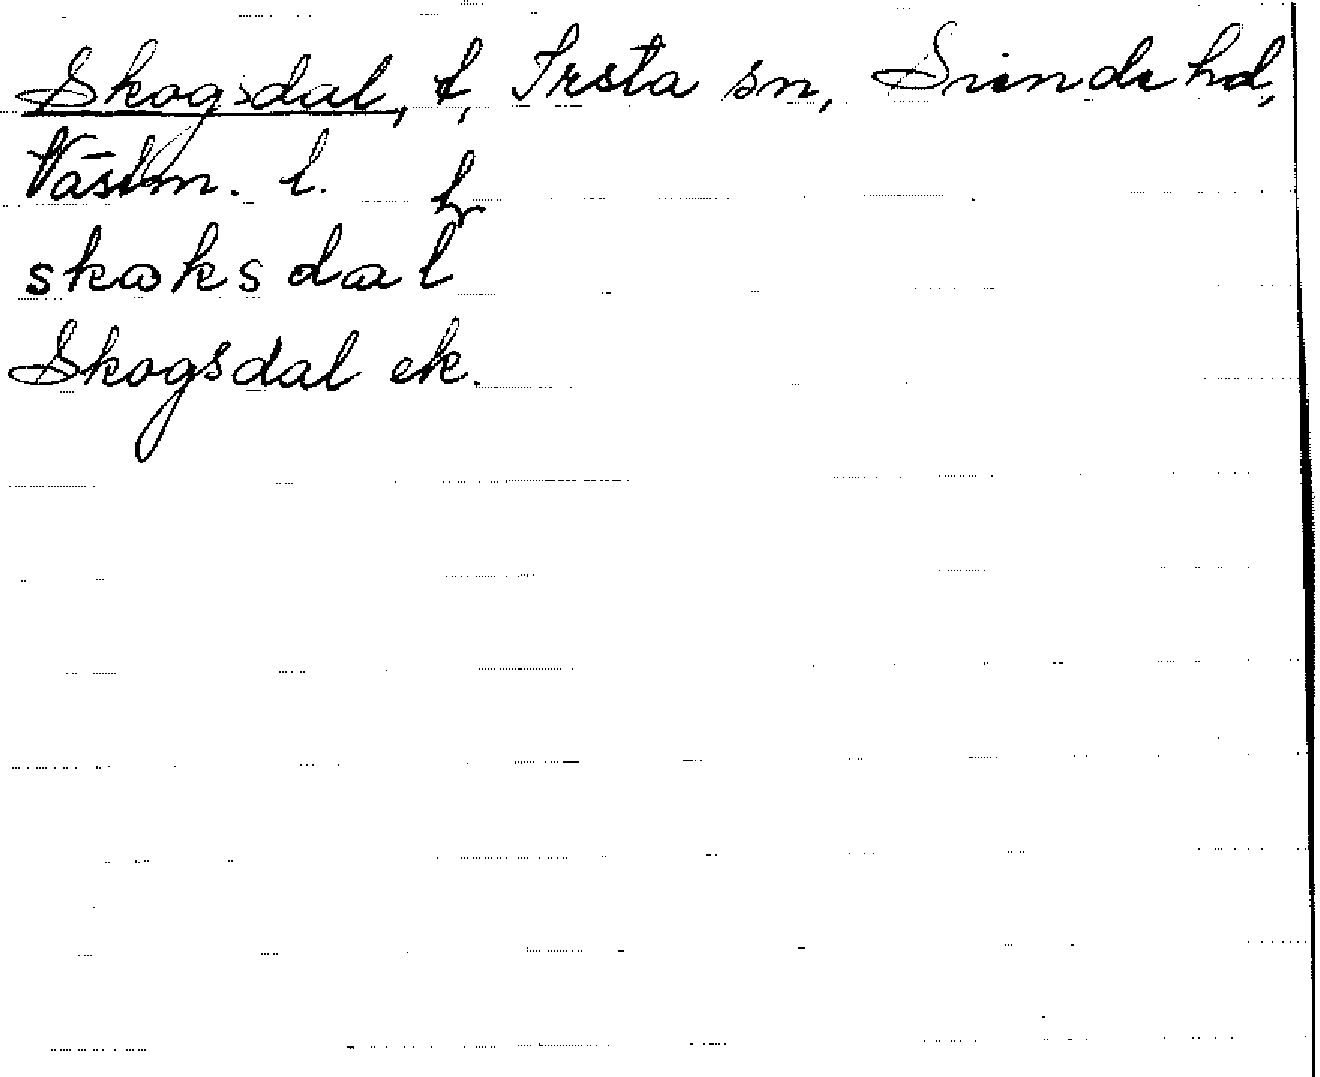 Skogsdal, t, Irsta sn, Siende hd,
Västm. l.
skoksdal
Skogsdal ek.